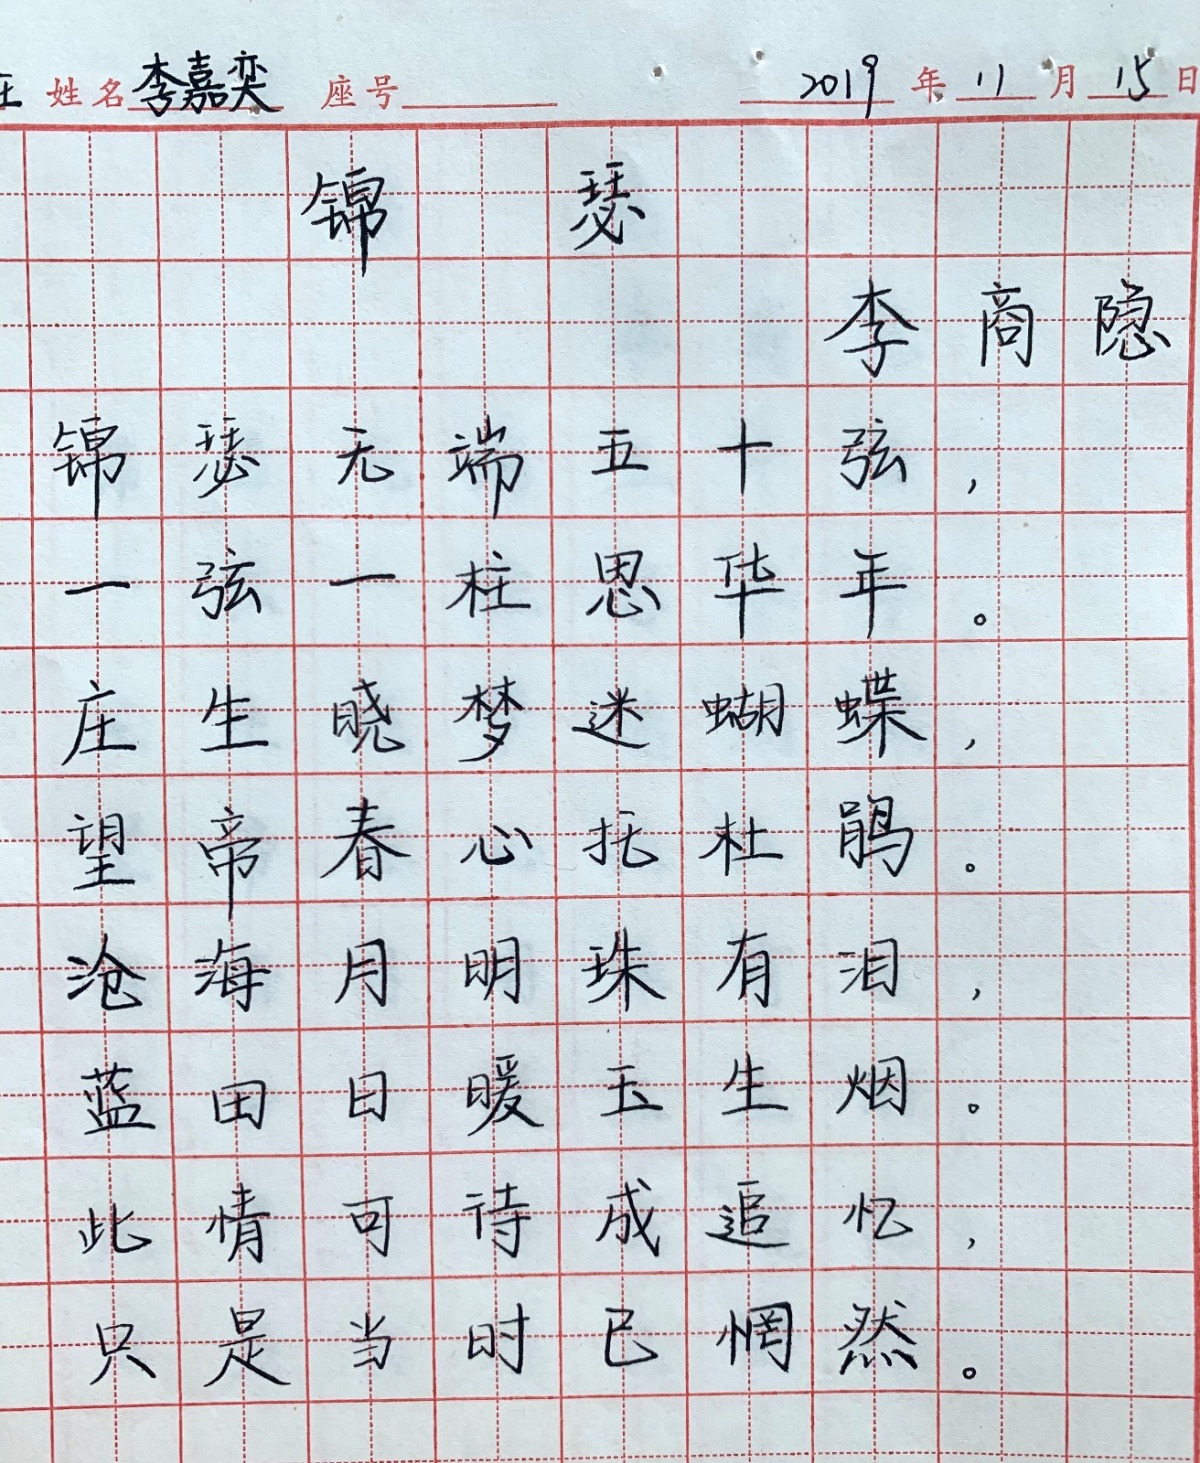 姓名 李嘉奕 座号 2019 年 11 月 15 日
锦瑟
李商隐
锦瑟无端五十弦，
一弦一柱思华年。
庄生晓梦迷蝴蝶，
望帝春心托杜鹃。
沧海月明珠有泪，
蓝田日暖玉生烟。
此情可待成追忆，
只是当时已惘然。